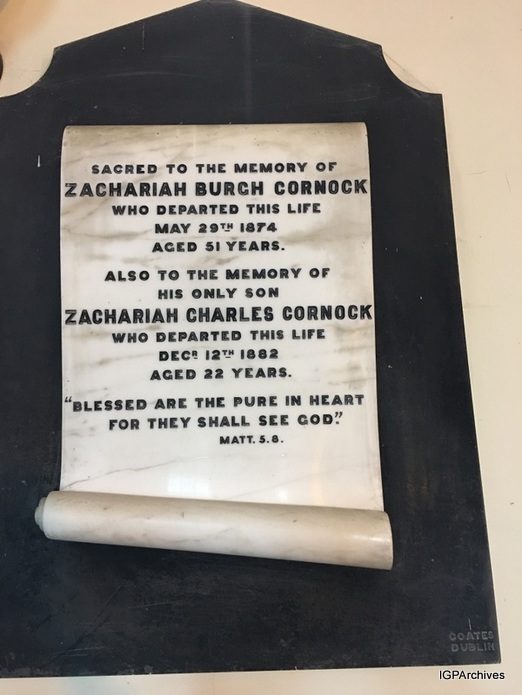 SACRED TO THE MEMORY OF
ZACHARIAH BURGH CORNOCK
WHO DEPARTED THIS LIFE
MAY 29TH 1874
AGED 51 YEARS.
ALSO TO THE MEMORY OF
HIS ONLY SON
ZACHARIAH CHARLES CORNOCK
WHO DEPARTED THIS LIFE
DECR 12TH 1882
AGED 22 YEARS.
"BLESSED ARE THE PURE IN HEART
FOR THEY SHALL SEE GOD."
MATT. 5.8.
COATES
DUBLIN
IGPArchives